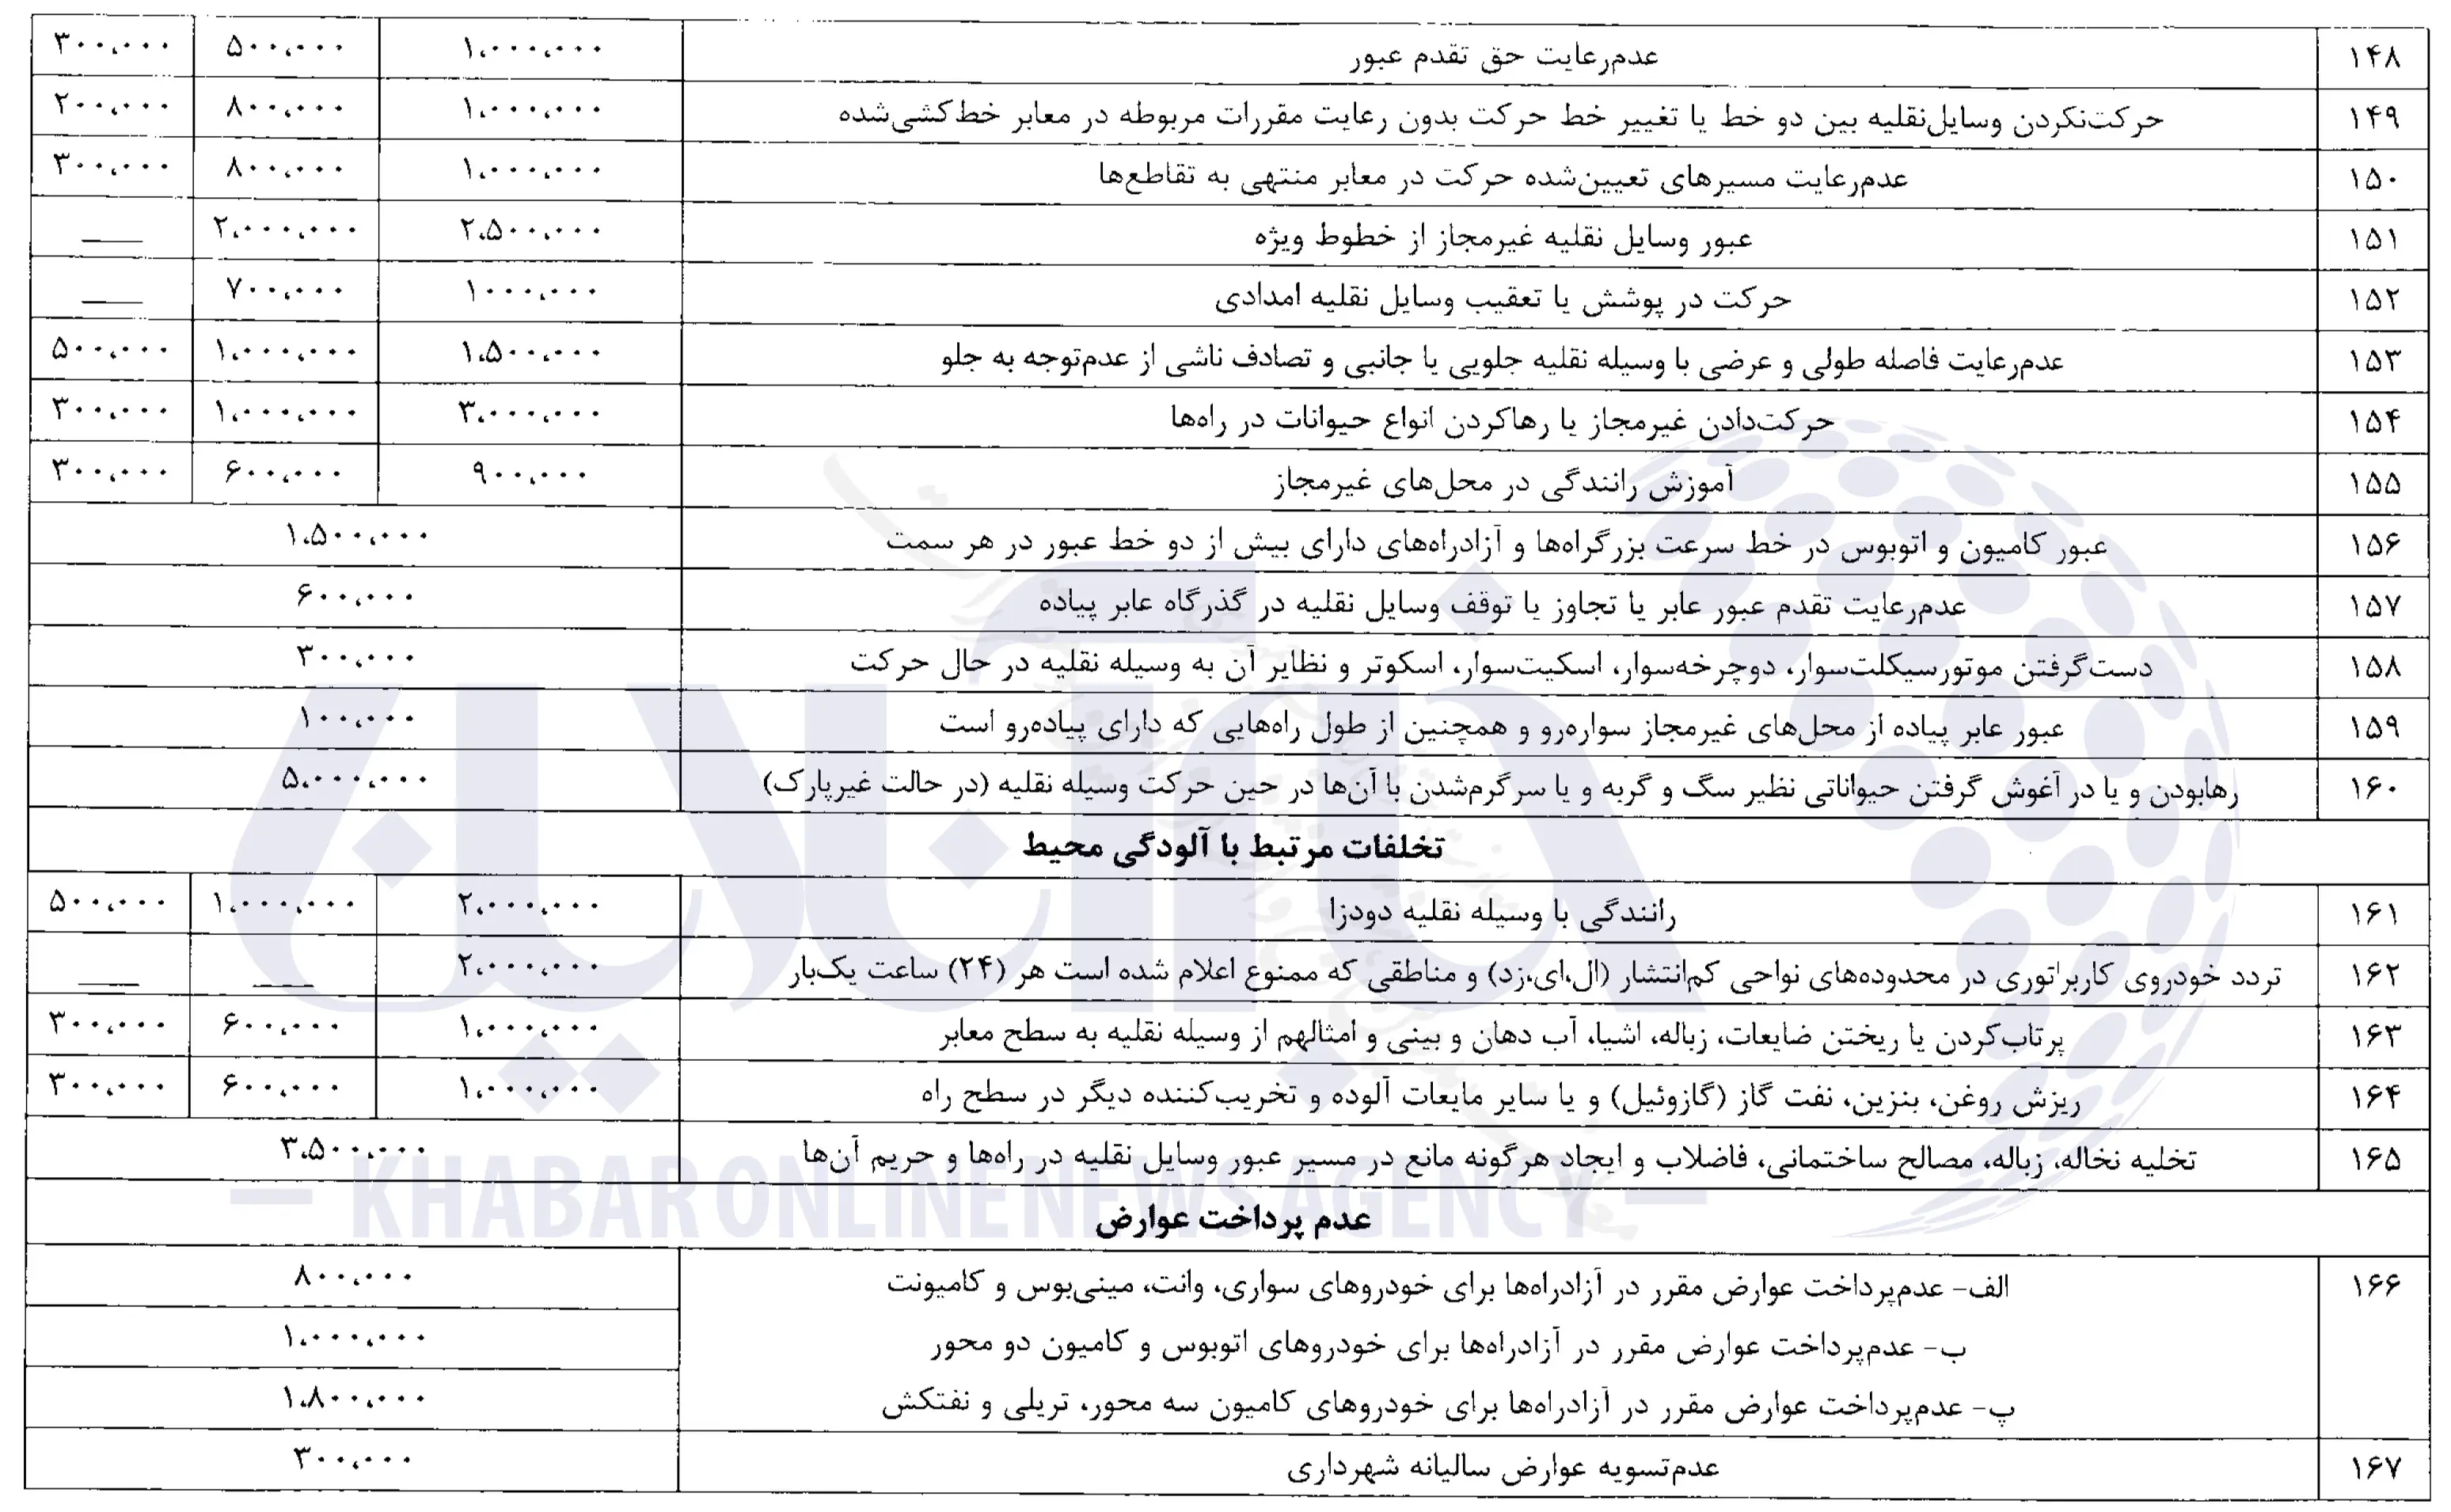 ۱۴۸ عدم‌رعایت حق تقدم عبور ۱،۰۰۰،۰۰۰ ۵۰۰،۰۰۰ ۳۰۰،۰۰۰
۱۴۹ حرکت‌نکردن وسایل‌نقلیه بین دو خط یا تغییر خط حرکت بدون رعایت مقررات مربوطه در معابر خط‌کشی‌شده ۱،۰۰۰،۰۰۰ ۸۰۰،۰۰۰ ۲۰۰،۰۰۰
۱۵۰ عدم‌رعایت مسیرهای تعیین‌شده حرکت در معابر منتهی به تقاطع‌ها ۱،۰۰۰،۰۰۰ ۸۰۰،۰۰۰ ۳۰۰،۰۰۰
۱۵۱ عبور وسایل نقلیه غیرمجاز از خطوط ویژه ۲،۵۰۰،۰۰۰ ۲،۰۰۰،۰۰۰ ___
۱۵۲ حرکت در پوشش یا تعقیب وسایل نقلیه امدادی ۱۰۰۰،۰۰۰ ۷۰۰،۰۰۰ ___
۱۵۳ عدم‌رعایت فاصله طولی و عرضی با وسیله نقلیه جلویی یا جانبی و تصادف ناشی از عدم‌توجه به جلو ۱،۵۰۰،۰۰۰ ۱،۰۰۰،۰۰۰ ۵۰۰،۰۰۰
۱۵۴ حرکت‌دادن غیرمجاز یا رهاکردن انواع حیوانات در راه‌ها ۳،۰۰۰،۰۰۰ ۱،۰۰۰،۰۰۰ ۳۰۰،۰۰۰
۱۵۵ آموزش رانندگی در محل‌های غیرمجاز ۹۰۰،۰۰۰ ۶۰۰،۰۰۰ ۳۰۰،۰۰۰
۱۵۶ عبور کامیون و اتوبوس در خط سرعت بزرگراه‌ها و آزادراه‌های دارای بیش از دو خط عبور در هر سمت ۱،۵۰۰،۰۰۰
۱۵۷ عدم‌رعایت تقدم عبور عابر یا تجاوز یا توقف وسایل نقلیه در گذرگاه عابر پیاده ۶۰۰،۰۰۰
۱۵۸ دست‌گرفتن موتورسیکلت‌سوار، دوچرخه‌سوار، اسکیت‌سوار، اسکوتر و نظایر آن به وسیله نقلیه در حال حرکت ۳۰۰،۰۰۰
۱۵۹ عبور عابر پیاده از محل‌های غیرمجاز سواره‌رو و همچنین از طول راه‌هایی که دارای پیاده‌رو است ۱۰۰،۰۰۰
۱۶۰ رهابودن و یا در آغوش گرفتن حیواناتی نظیر سگ و گربه و یا سرگرم‌شدن با آن‌ها در حین حرکت وسیله نقلیه (در حالت غیرپارک) ۵،۰۰۰،۰۰۰
تخلفات مرتبط با آلودگی محیط
۱۶۱ رانندگی با وسیله نقلیه دودزا ۲،۰۰۰،۰۰۰ ۱،۰۰۰،۰۰۰ ۵۰۰،۰۰۰
۱۶۲ تردد خودروی کاربراتوری در محدوده‌های نواحی کم‌انتشار (ال،ای،زد) و مناطقی که ممنوع اعلام شده است هر (۲۴) ساعت یک‌بار ۲،۰۰۰،۰۰۰ ___ ___
۱۶۳ پرتاب‌کردن یا ریختن ضایعات، زباله، اشیا، آب دهان و بینی و امثالهم از وسیله نقلیه به سطح معابر ۱،۰۰۰،۰۰۰ ۶۰۰،۰۰۰ ۳۰۰،۰۰۰
۱۶۴ ریزش روغن، بنزین، نفت گاز (گازوئیل) و یا سایر مایعات آلوده و تخریب‌کننده دیگر در سطح راه ۱،۰۰۰،۰۰۰ ۶۰۰،۰۰۰ ۳۰۰،۰۰۰
۱۶۵ تخلیه نخاله، زباله، مصالح ساختمانی، فاضلاب و ایجاد هرگونه مانع در مسیر عبور وسایل نقلیه در راه‌ها و حریم آن‌ها ۳،۵۰۰،۰۰۰
عدم پرداخت عوارض
۱۶۶ الف- عدم‌پرداخت عوارض مقرر در آزادراه‌ها برای خودروهای سواری، وانت، مینی‌بوس و کامیونت ۸۰۰،۰۰۰
ب- عدم‌پرداخت عوارض مقرر در آزادراه‌ها برای خودروهای اتوبوس و کامیون دو محور ۱،۰۰۰،۰۰۰
پ- عدم‌پرداخت عوارض مقرر در آزادراه‌ها برای خودروهای کامیون سه محور، تریلی و نفتکش ۱،۸۰۰،۰۰۰
۱۶۷ عدم‌تسویه عوارض سالیانه شهرداری ۳۰۰،۰۰۰
خبرآنلاین
KHABARONLINE NEWS AGENCY